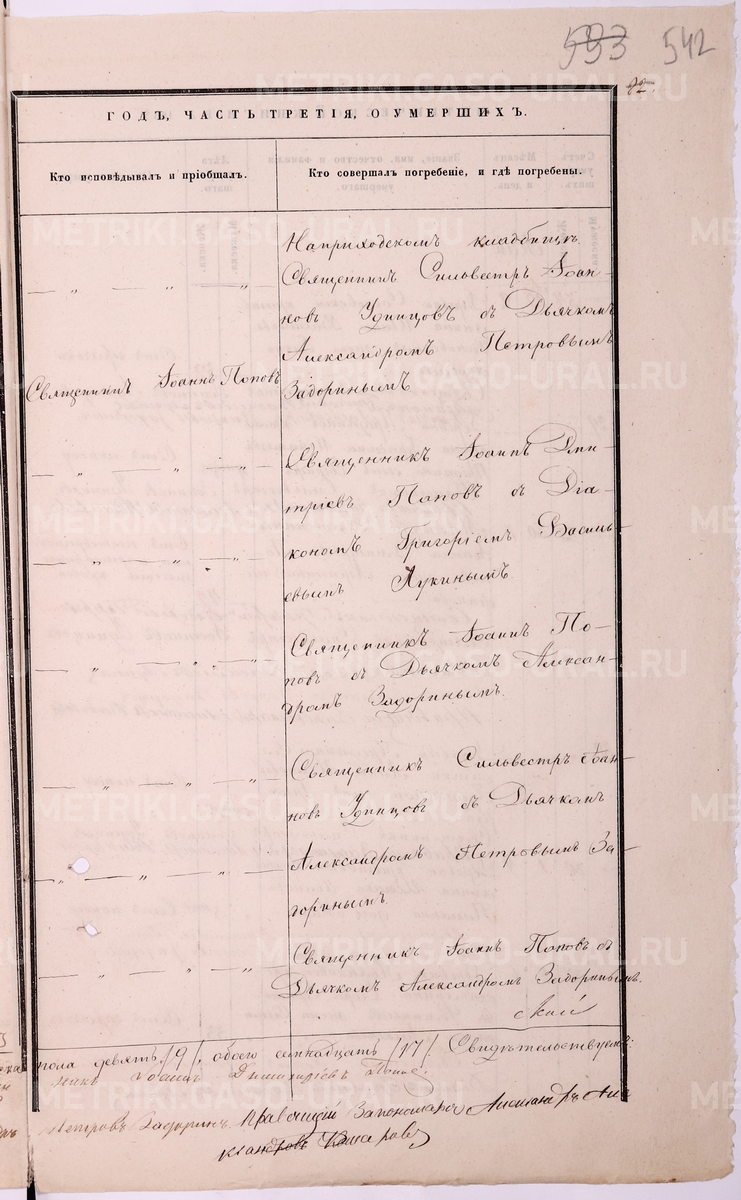 593 542
ГОДЪ, ЧАСТЬ ТРЕТІЯ, О УМЕРШИХЪ.
Кто исповѣдывалъ и пріобщалъ.
Кто совершалъ погребеніе, и гдѣ погребены.
На приходскомъ кладбищѣ
Священникъ Сильвестръ Іоан-
новъ Удинцовъ съ Дьячкомъ
Александромъ Петровымъ
Священникъ Іоаннъ Поповъ
Задоринымъ
Священникъ Іоаннъ Дми-
тріевъ Поповъ съ Діа-
кономъ Григоріемъ Василь-
евымъ Лукинымъ
Священникъ Іоаннъ По-
повъ съ Дьячкомъ Алексан-
дромъ Задоринымъ.
Священникъ Сильвестръ Іоан-
новъ Удинцовъ съ Дьячкомъ
Александромъ Петровымъ За-
доринымъ.
Священникъ Іоаннъ Поповъ съ
Дьячкомъ Александромъ Задоринымъ.
пола девять /9/, обоего семнадцать /17/. Свидѣтельствуемъ:
Іоаннъ Димитріевъ Поповъ.
Петровъ Задоринъ. Правящій Александръ Але
ксандровъ
METRIKI.GASO-URAL.RU